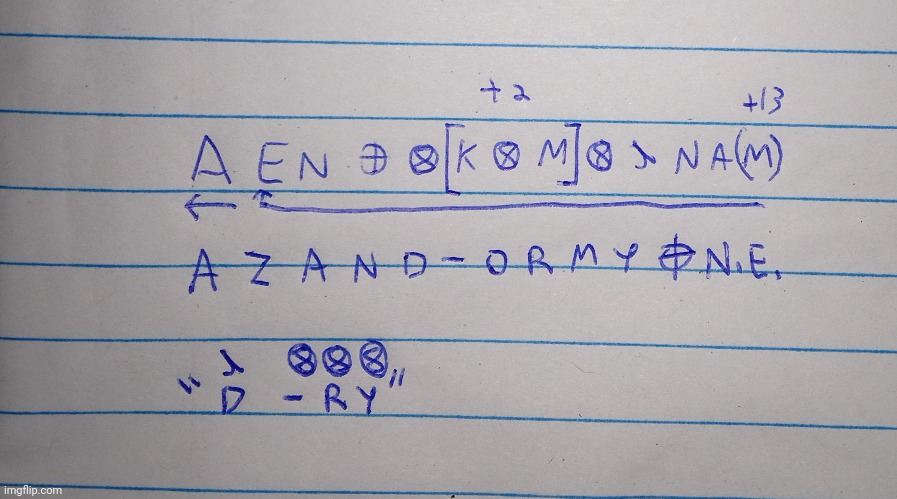 +2 +13
A E N ⊕ ⊗ [K ⊗ M] ⊗ λ N A(M)
← ↑
A Z A N D - O R M Y ⊕ N.E.
" λ ⊗⊗⊗ "
D - R Y
imgflip.com